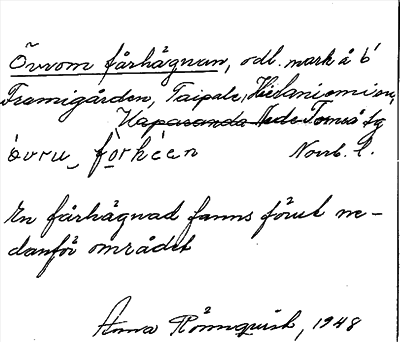 Övrom fårhägnan, odl. mark å b'
Framigården, Taipale, Hietaniemi sn,
Haparanda Nede Torneå tg
òvru_ fòrhéen Norrb. l.
En fårhägnad fanns förut ne-
danför området
Anna Rönnquist, 1948